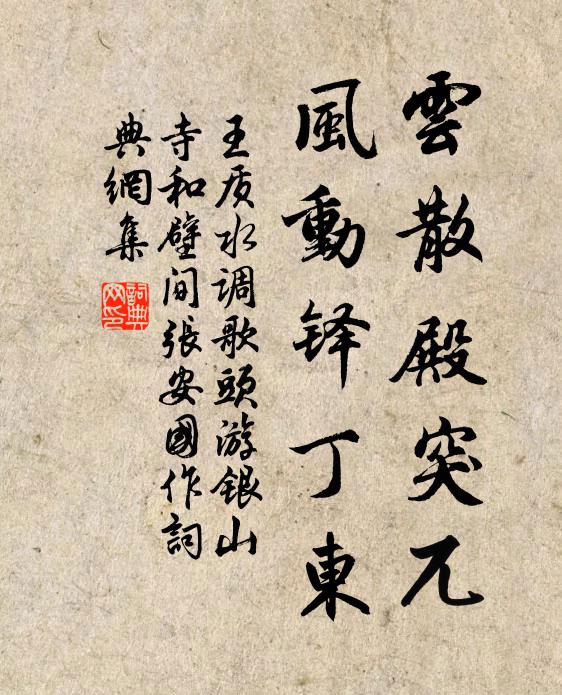 雲散殿突兀
風動铎丁東
王质水调歌頭游銀山
寺和壁间張安國作詞
典網集
詞典
网印